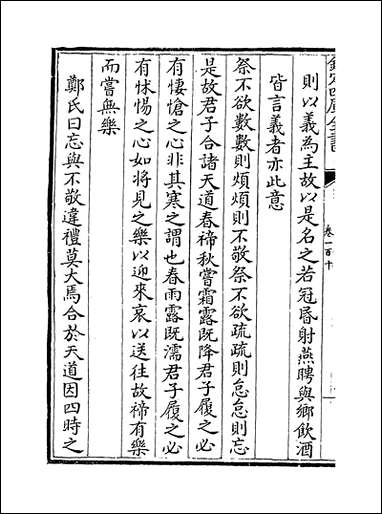 欽定四庫全書
卷一百十
則以義為主故以是名之若冠昏射燕聘與鄉飲酒
皆言義者亦此意
祭不欲數數則煩煩則不敬祭不欲疏疏則怠怠則忘
是故君子合諸天道春禘秋嘗霜露既降君子履之必
有悽愴之心非其寒之謂也春雨露既濡君子履之必
有怵惕之心如將見之樂以迎來哀以送往故禘有樂
而嘗無樂
鄭氏曰忘與不敬違禮莫大焉合於天道因四時之